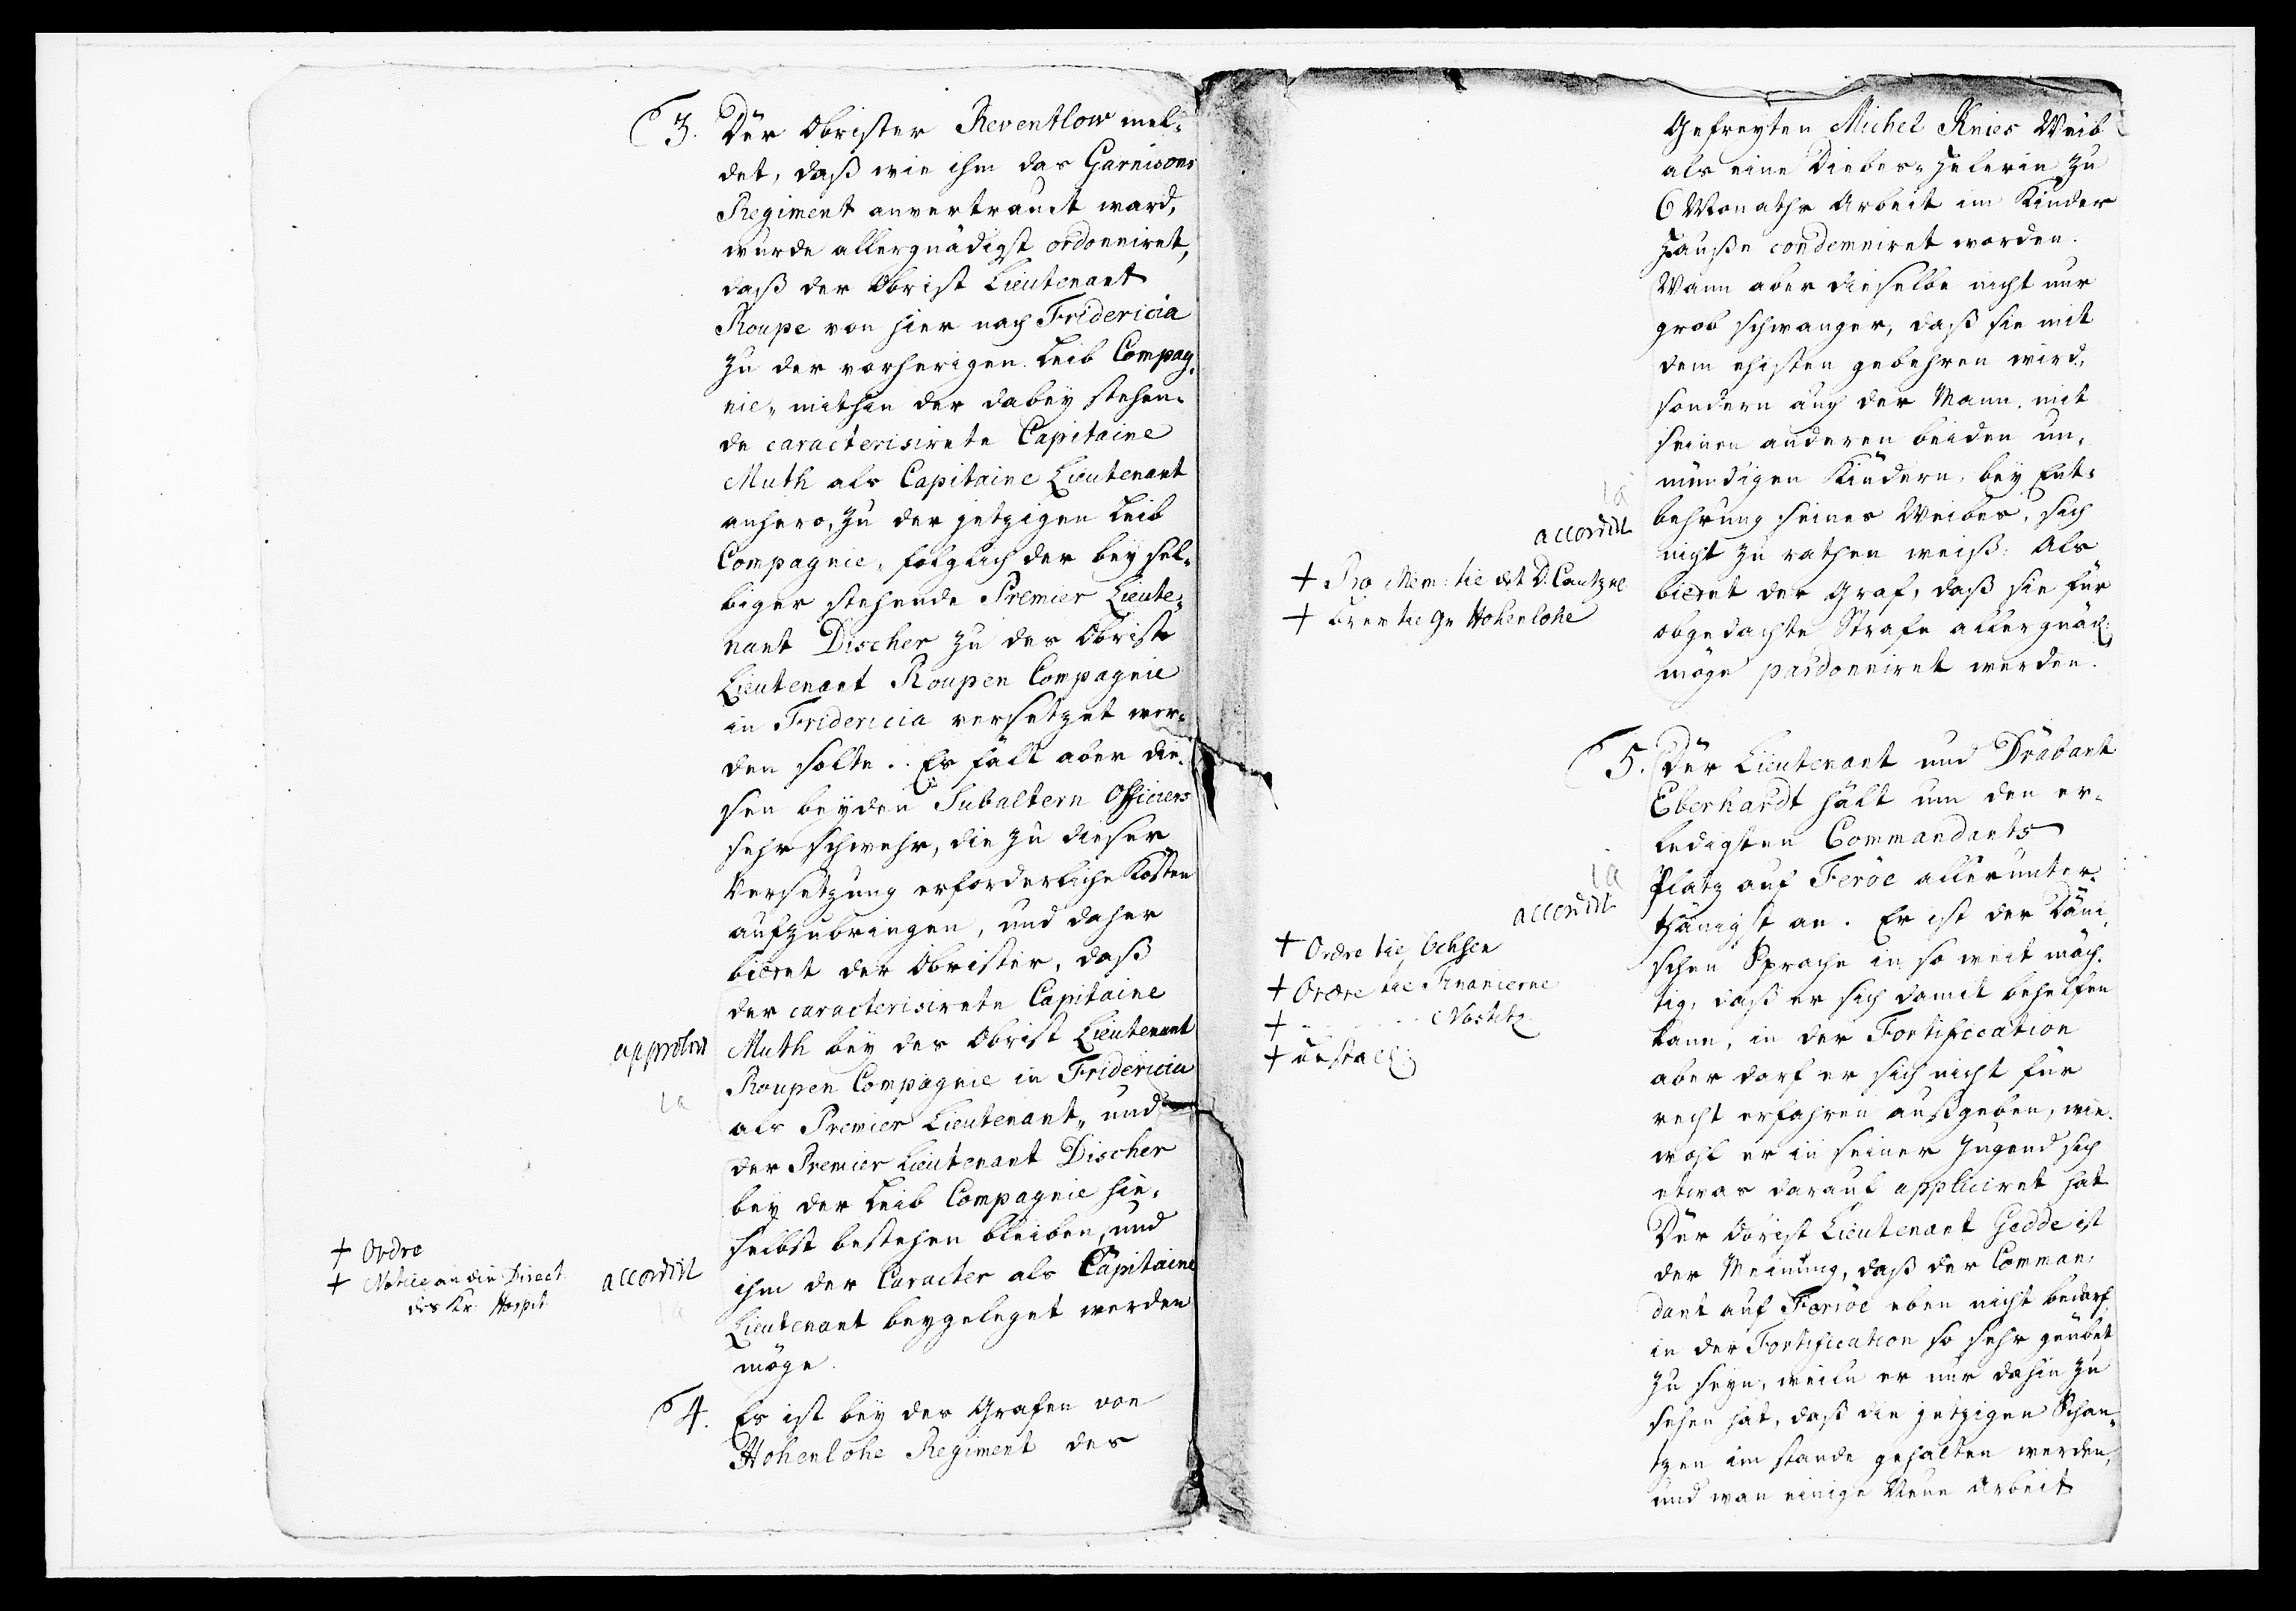 3. Der Obrister Reventlow mel-
det, daß wie ihm das Garnisons
Regiment anvertrauet ward,
wurde allergnädigst ordonniret,
daß der Obrist Lieutenant
Roupe von hier nach Fridericia
zu der vorherigen Leib Compag-
nie, mithin der dabey stehen-
de caracterisirete Capitaine
Muth als Capitaine Lieutenant
anhero, zu der jetzigen Leib
Compagnie, folglich der bey sel-
biger stehende Premier Lieute-
nant Discher zu des Obrist
Lieutenant Roupen Compagnie
in Fridericia versetzet wer-
den solte. Es fält aber die-
sen beyden Subaltern Officiers
sehr schwehr, die zu dieser
Versetzung erforderliche Kosten
aufzubringen, und daher
bietet der Obrister, daß
der caracterisirete Capitaine
approbirt
Muth bey des Obrist Lieutenant
Roupen Compagnie in Fridericia
ia
als Premier Lieutenant, und
der Premier Lieutenant Discher
bey der Leib Compagnie hie-
selbst bestehen bleiben, und
+ Ordre
+ Notice an die Direct.
des Kr. Hospit.
accordirt
ia
ihm der Caracter als Capitaine
Lieutenant beygeleget werden
möge.
4. Es ist bey des Grafen von
Hohenlohe Regiment des
Gefreyten Michel Knies Weib
als eine Diebes-Helerin zu
6 Monaths Arbeit im Kinder
Hause condemniret worden.
Wann aber dieselbe nicht nur
grob schwanger, daß sie mit
dem ehisten gebehren wird,
sondern auch der Mann, mit
seinen anderen beiden un-
mündigen Kindern, bey Ent-
ia
behrung seines Weibes, sich
accordirt
nicht zu rathen weiß: Als
+ Pro Mem: til det D. Cantzel
bietet der Graf, daß sie für
+ til Gr Hohenlohe
obgedachte Strafe allergnäd:
möge pardonniret werden.
5. Der Lieutenant und Drabant
Eberhardt hält um den er-
ledigten Commandants
ia
Platz auf Feröe allerunter-
accordirt
thänigst an. Er ist der Däni-
+ Ordre til Ochsen
schen Sprache in so weit mäch-
+ Ordre til Financerne
tig, daß er sich damit behelfen
+ - - - - Nostitz
kann, in der Fortification
+ Bestall:
aber dorf er sich nicht für
recht erfahren außgeben, wie-
wohl er in seiner Jugend sich
etwas darauf appliciret hat.
Der Obrist Lieutenant Gedde ist
der Meinung, daß der Comman-
dant auf Færöe eben nicht bedarf
in der Fortification so sehr geübet
zu seyn, weiln er nur dahin zu
sehen hat, daß die jetzigen Schan-
tzen im stande gehalten werden,
und wan einige Neue Arbeit